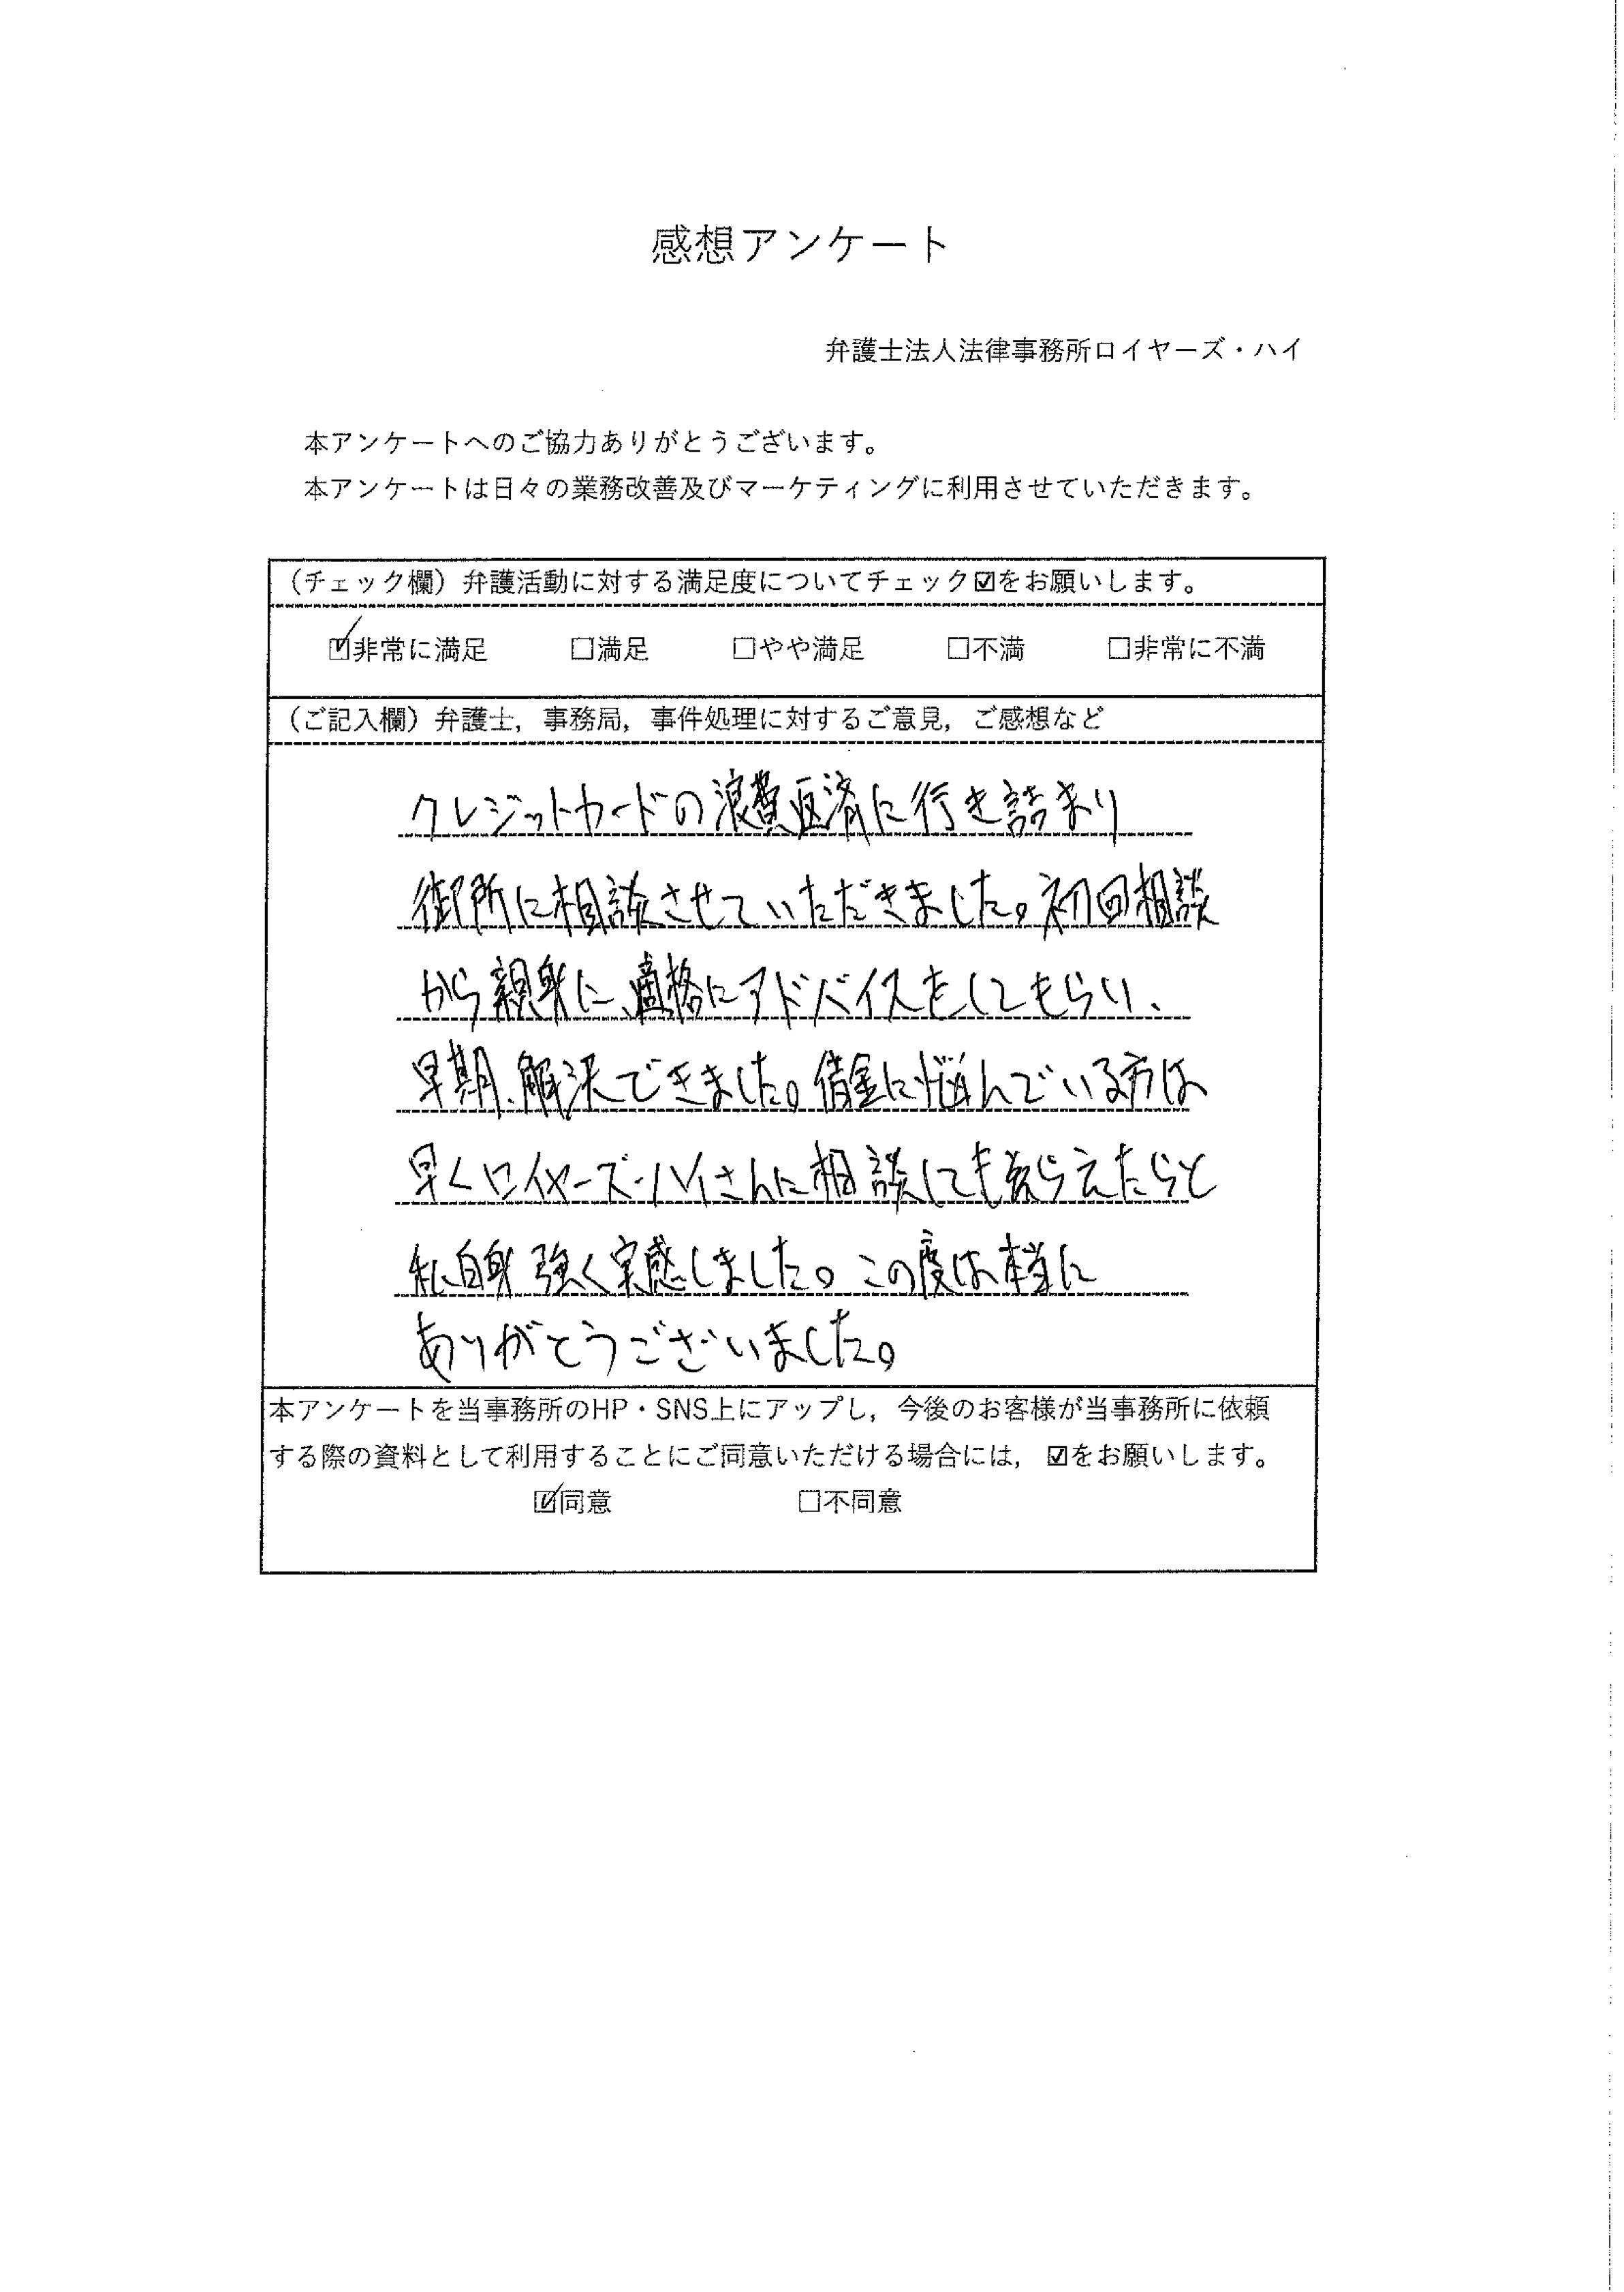 感想アンケート
弁護士法人法律事務所ロイヤーズ・ハイ
本アンケートへのご協力ありがとうございます。
本アンケートは日々の業務改善及びマーケティングに利用させていただきます。
（チェック欄）弁護活動に対する満足度についてチェック☑をお願いします。
☑非常に満足 □満足 □やや満足 □不満 □非常に不満
（ご記入欄）弁護士，事務局，事件処理に対するご意見，ご感想など
クレジットカードの浪費返済に行き詰まり
御所に相談させていただきました。初回相談
から親身に、適格にアドバイスをしてもらい、
早期、解決できました。借金に悩んでいる方は
早くロイヤーズ・ハイさんに相談しても貰らえたらと
私自身強く実感しました。この度は本当に
ありがとうございました。
本アンケートを当事務所のHP・SNS上にアップし，今後のお客様が当事務所に依頼
する際の資料として利用することにご同意いただける場合には，☑をお願いします。
☑同意 □不同意